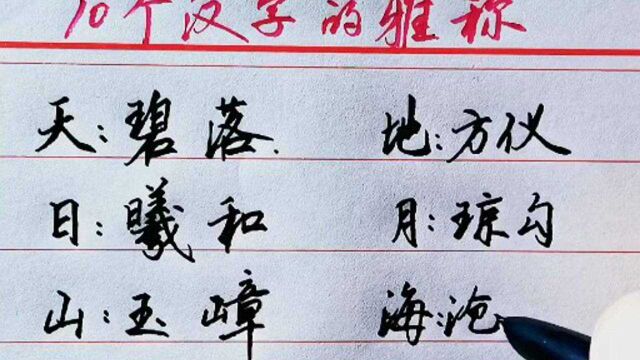 10个汉字的雅称
天:碧落 地:方仪
日:曦和 月:琼勾
山:玉嶂 海:沧